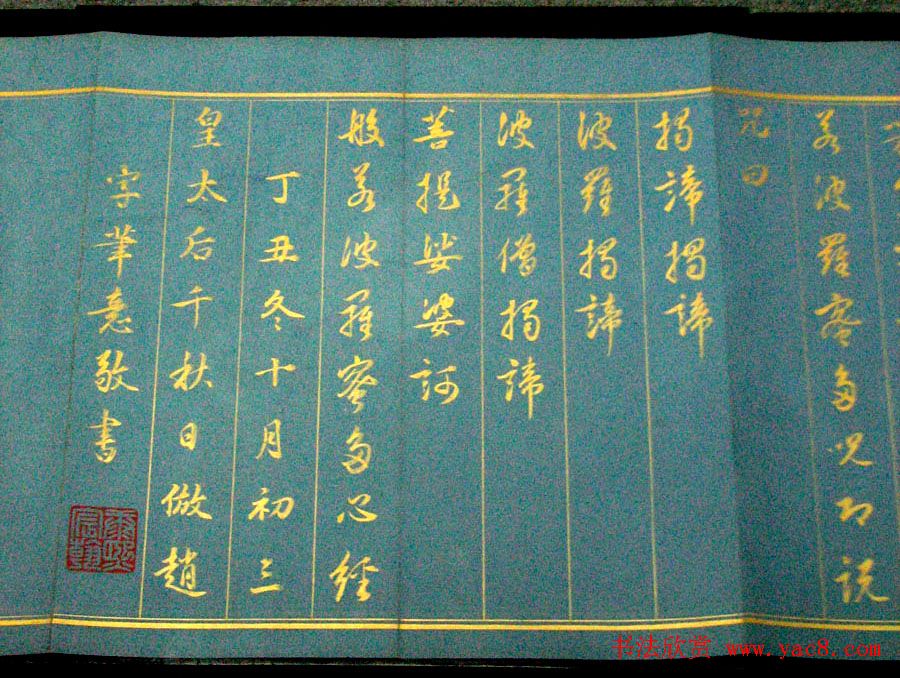 若波羅蜜多呪即説
咒曰
揭諦揭諦
波羅揭諦
波羅僧揭諦
菩提娑婆訶
般若波羅蜜多心經
丁丑冬十月初三
皇太后千秋日倣趙
字筆意敬書
书法欣赏 www.yac8.com